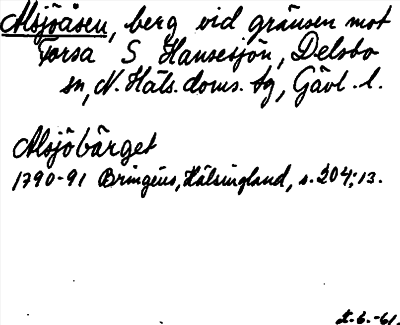 Alsjöåsen, berg vid gränsen mot
Forsa S Hansesjön, Delsbo
sn, N. Häls. doms. tg, Gävl. l.
Alsjöbärget
1790-91 Bringéus, Hälsingland, s. 204:13.